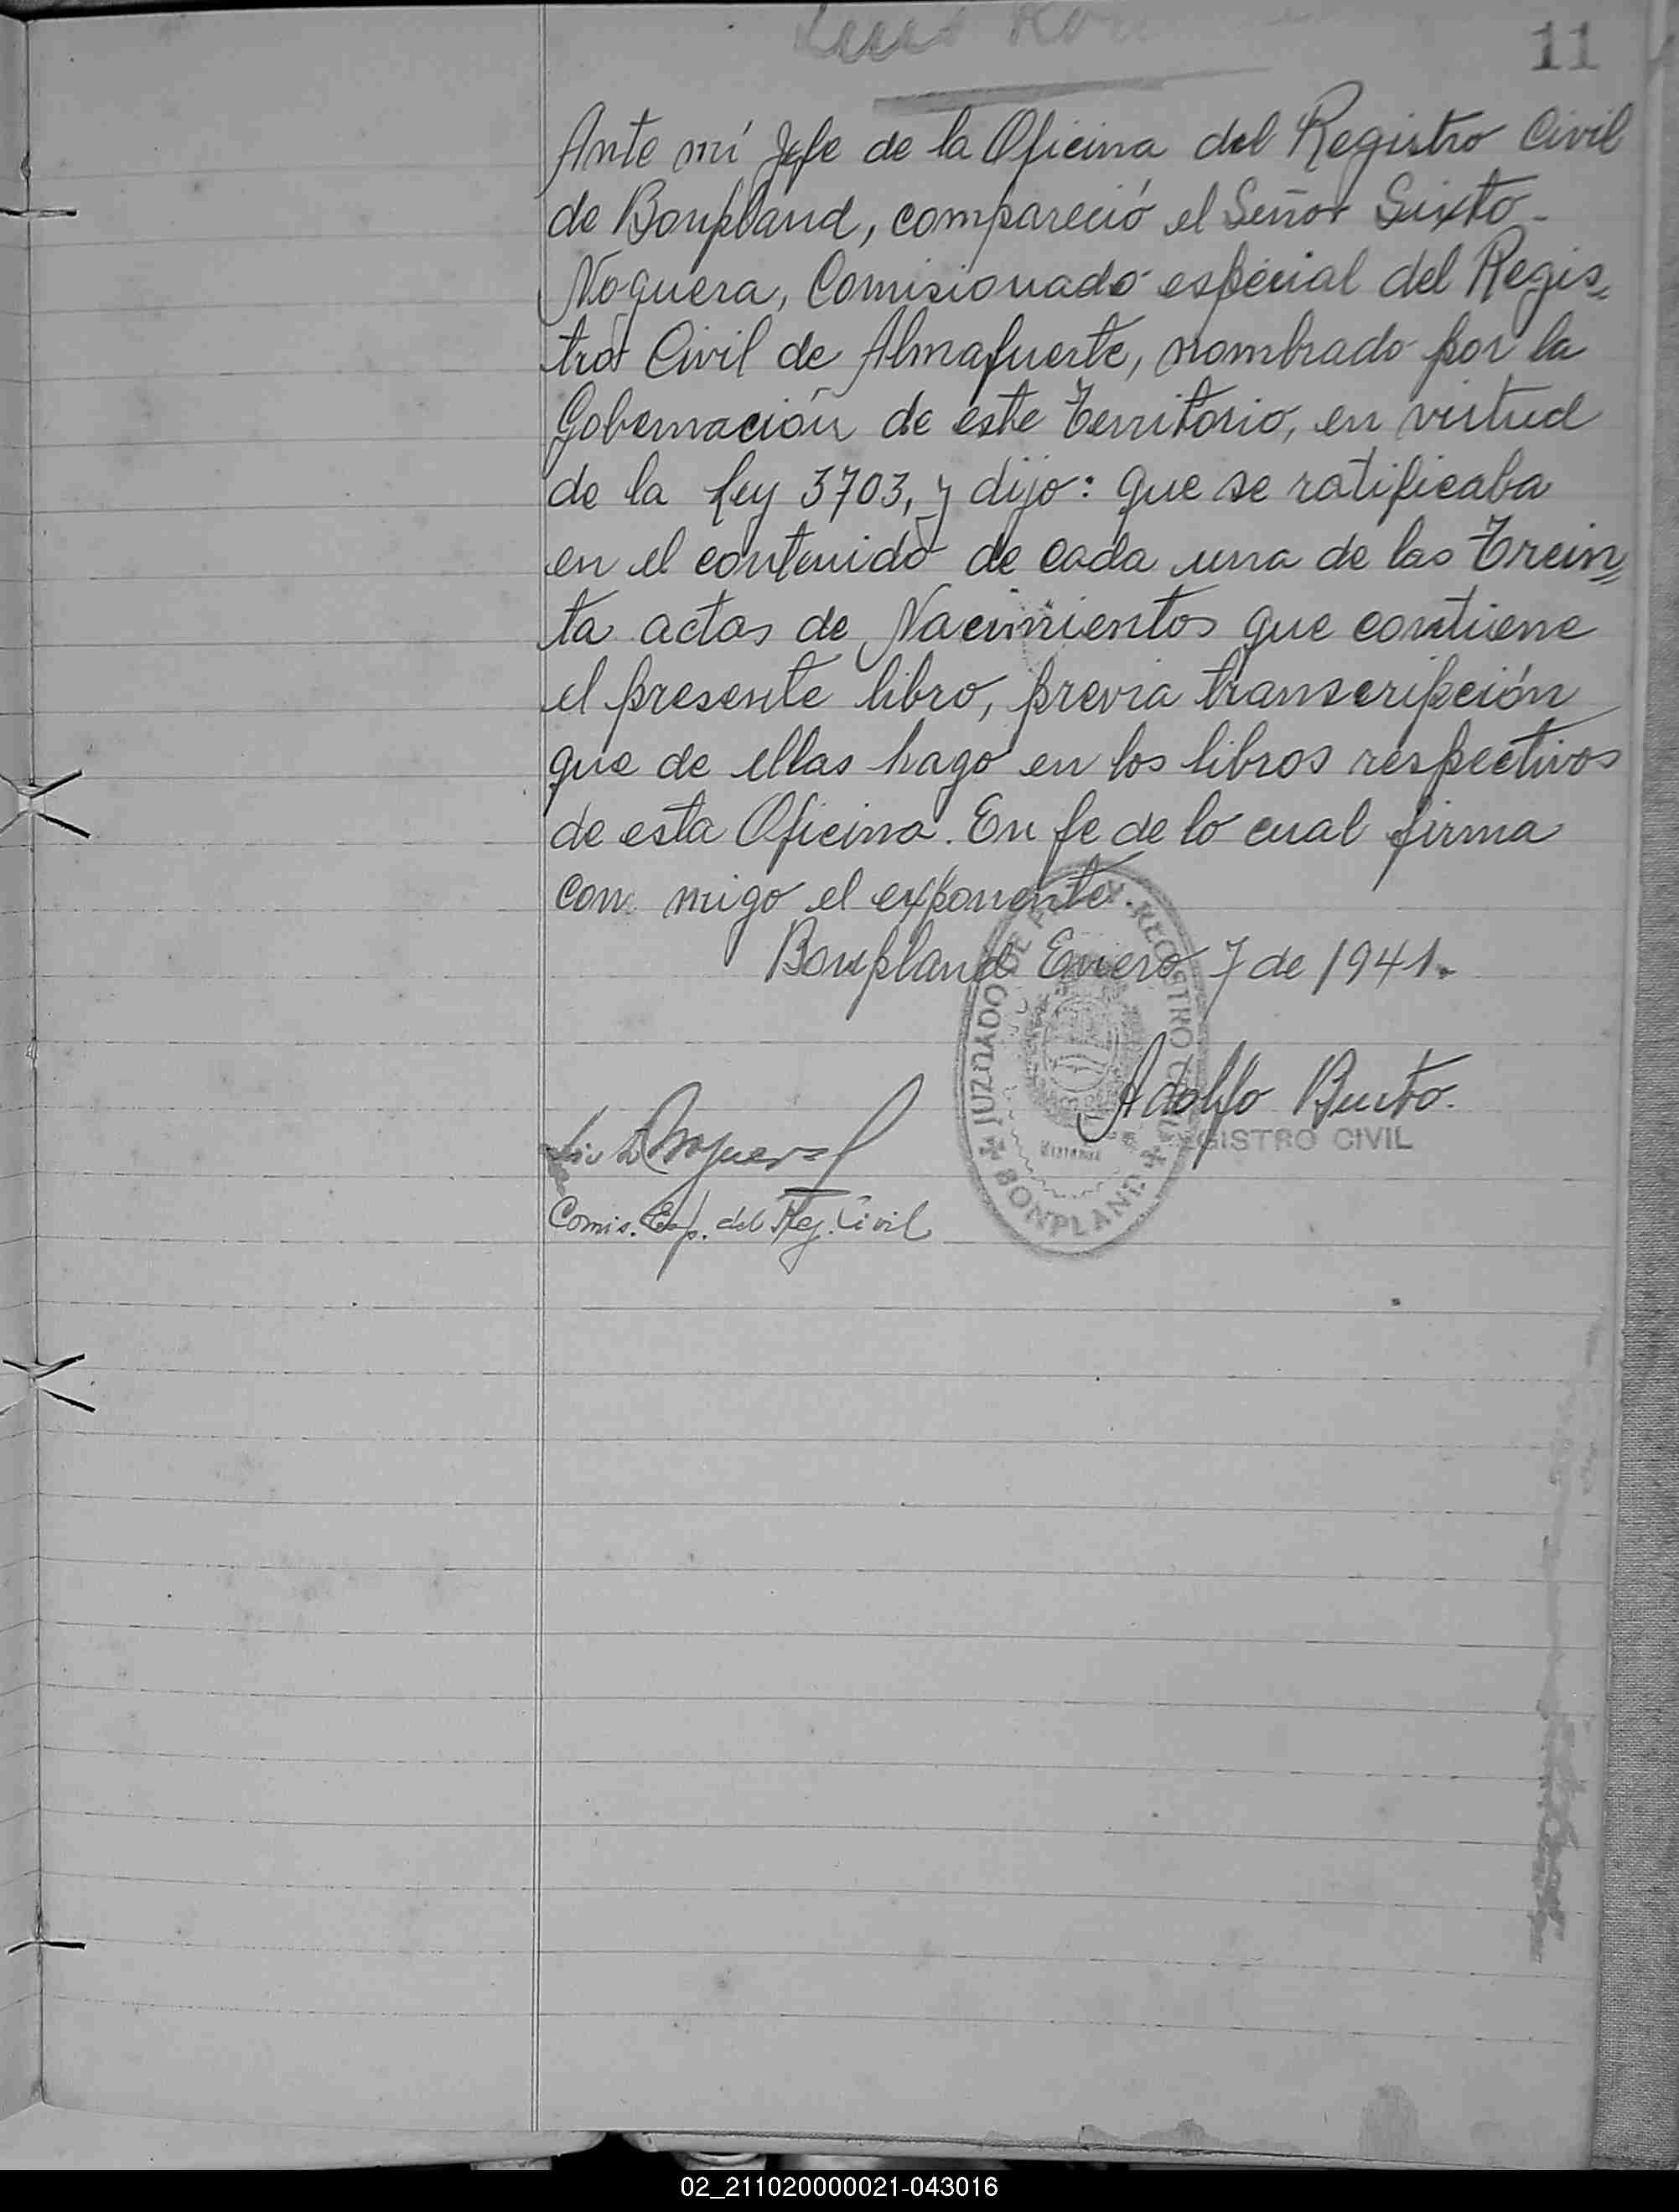 11
Ante mí Jefe de la Oficina del Registro Civil
de Bonpland, compareció el Señor Sixto
Noguera, Comisionado especial del Regis=
tro Civil de Almafuerte, nombrado por la
Gobernación de este Territorio, en virtud
de la Ley 3703, y dijo: que se ratificaba
en el contenido de cada una de las Trein=
ta actas de Nacimientos que contiene
el presente libro, previa transcripción
que de ellas hago en los libros respectivos
de esta Oficina. En fe de lo cual firma
con migo el exponente.
Bonpland Enero 7 de 1941.
JUZGADO DE PAZ Y REGISTRO CIVIL
BONPLAND
Adolfo
GISTRO CIVIL
Noguera
Comis. Esp. del Reg. Civil
02_211020000021-043016